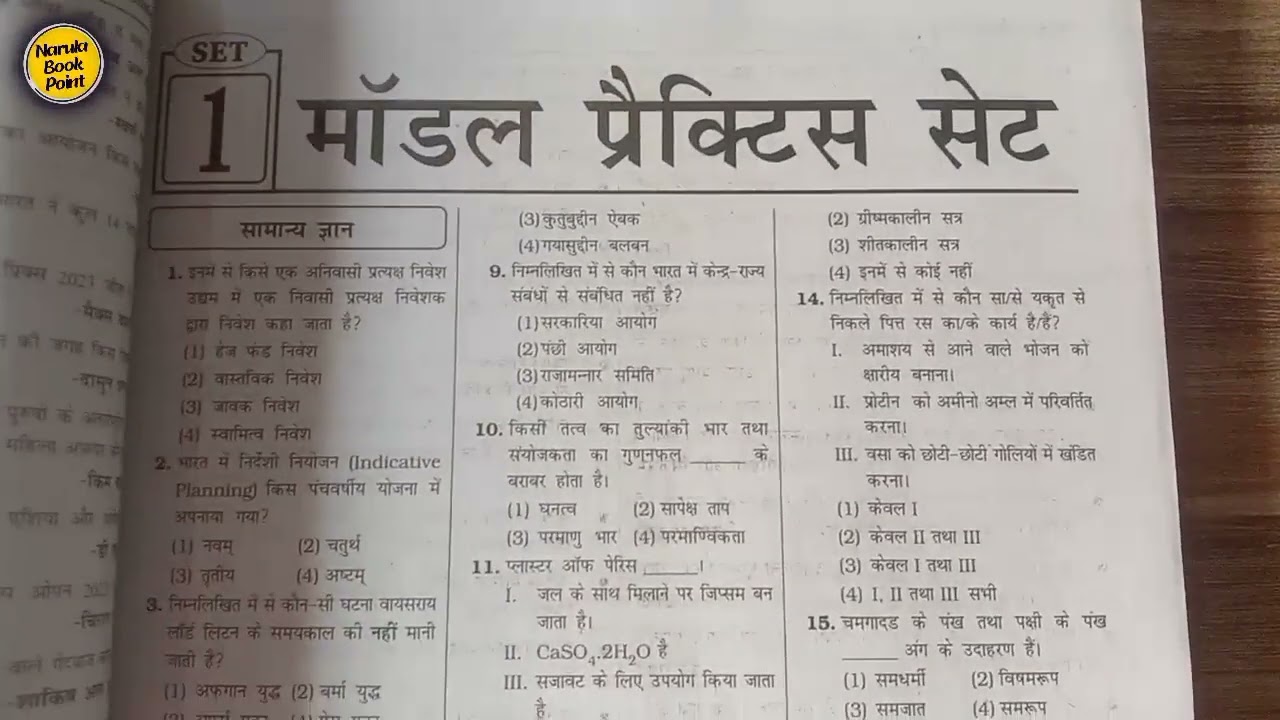 Narula
Book
Point
SET
1
मॉडल प्रैक्टिस सेट
सामान्य ज्ञान
1. इनमें से किसे एक अनिवासी प्रत्यक्ष निवेश
उद्यम में एक निवासी प्रत्यक्ष निवेशक
द्वारा निवेश कहा जाता है?
(1) हेज फंड निवेश
(2) वास्तविक निवेश
(3) जावक निवेश
(4) स्वामित्व निवेश
2. भारत में निर्देशी नियोजन (Indicative
Planning) किस पंचवर्षीय योजना में
अपनाया गया?
(1) नवम् (2) चतुर्थ
(3) तृतीय (4) अष्टम्
3. निम्नलिखित में से कौन-सी घटना वायसराय
लॉर्ड लिटन के समयकाल की नहीं मानी
जाती है?
(1) अफगान युद्ध (2) बर्मा युद्ध
(3) कुतुबुद्दीन ऐबक
(4) गयासुद्दीन बलबन
9. निम्नलिखित में से कौन भारत में केन्द्र-राज्य
संबंधों से संबंधित नहीं है?
(1) सरकारिया आयोग
(2) पंछी आयोग
(3) राजामन्नार समिति
(4) कोठारी आयोग
10. किसी तत्व का तुल्यांकी भार तथा
संयोजकता का गुणनफल ______ के
बराबर होता है।
(1) घनत्व (2) सापेक्ष ताप
(3) परमाणु भार (4) परमाण्विकता
11. प्लास्टर ऑफ पेरिस ______।
I. जल के साथ मिलाने पर जिप्सम बन
जाता है।
II. CaSO₄.2H₂O है
III. सजावट के लिए उपयोग किया जाता
है
(2) ग्रीष्मकालीन सत्र
(3) शीतकालीन सत्र
(4) इनमें से कोई नहीं
14. निम्नलिखित में से कौन सा/से यकृत से
निकले पित्त रस का/के कार्य है/हैं?
I. अमाशय से आने वाले भोजन को
क्षारीय बनाना।
II. प्रोटीन को अमीनो अम्ल में परिवर्तित
करना।
III. वसा को छोटी-छोटी गोलियों में खंडित
करना।
(1) केवल I
(2) केवल II तथा III
(3) केवल I तथा III
(4) I, II तथा III सभी
15. चमगादड के पंख तथा पक्षी के पंख
______ अंग के उदाहरण हैं।
(1) समधर्मी (2) विषमरूप
(3) समजात (4) समरूप